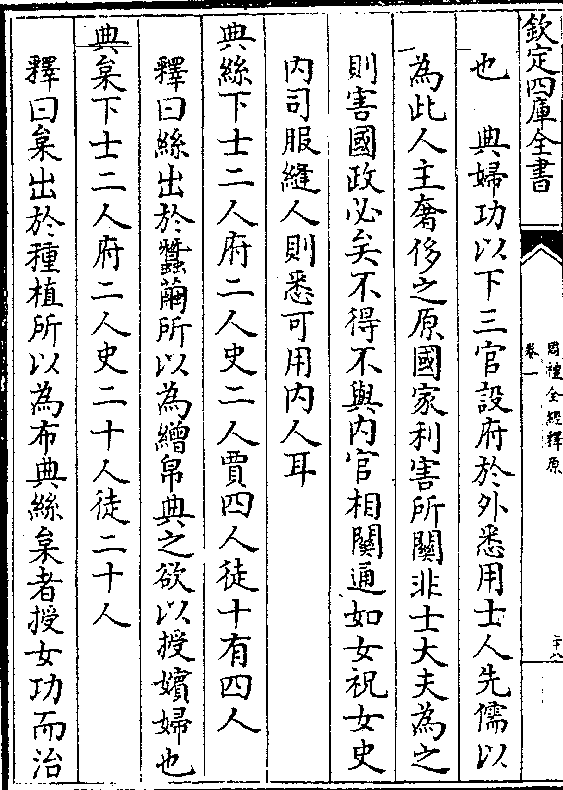 欽定四庫全書
周禮全經釋原
卷一
二十八
也　典婦功以下三官設府於外悉用士人先儒以
為此人主奢侈之原國家利害所關非士大夫為之
則害國政必矣不得不與内官相關通如女祝女史
内司服縫人則悉可用内人耳
典絲下士二人府二人史二人賈四人徒十有四人
釋曰絲出於蠶繭所以為繒帛典之欲以授嬪婦也
典枲下士二人府二人史二十人徒二十人
釋曰枲出於種植所以為布典絲枲者授女功而治